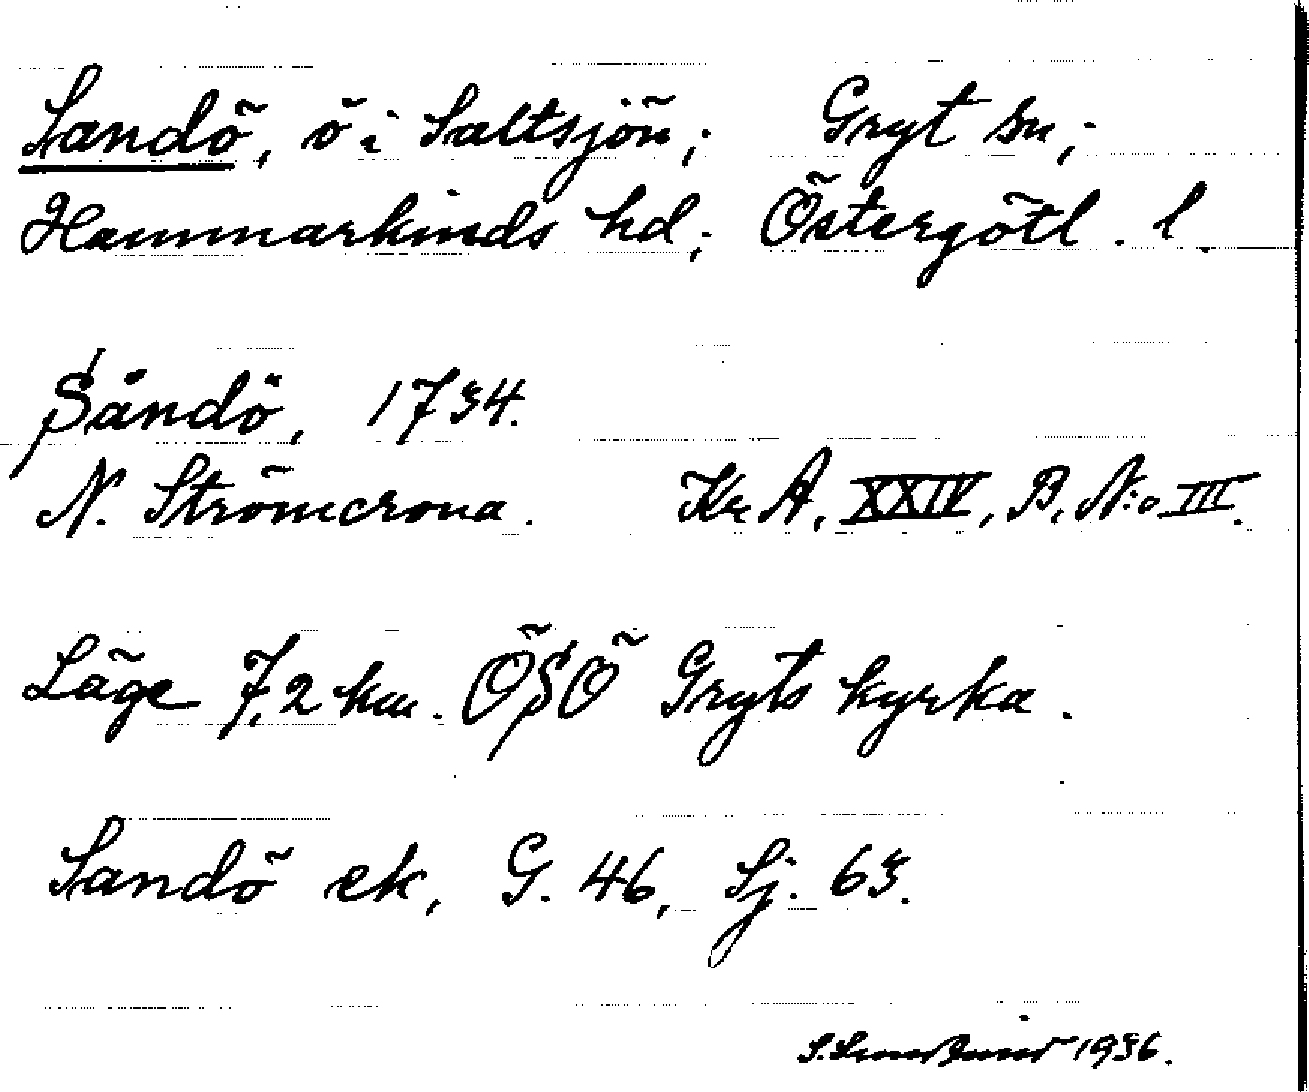 Sandö, ö i Saltsjön; Gryt sn;
Hammarkinds hd; Östergötl. l.
Sandö, 1734.
N. Strömcrona. Kr A, XXIV, B, N:o III.
Läge 7,2 km. ÖSÖ Gryts kyrka.
Sandö ek, G. 46, Sj. 63.
1936.